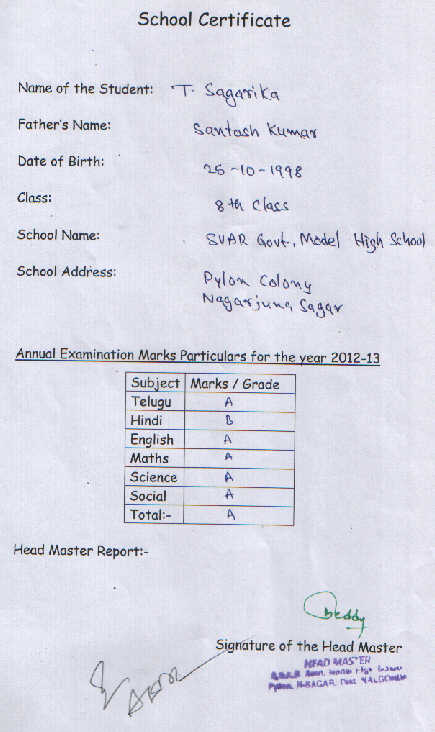 School Certificate
Name of the Student: T. Sagarika
Father's Name: Santosh Kumar
Date of Birth: 25-10-1998
Class: 8th Class
School Name: SVAR Govt., Model High School
School Address: Pylon Colony
Nagarjuna Sagar
Annual Examination Marks Particulars for the year 2012-13
Subject Marks / Grade
Telugu A
Hindi B
English A
Maths A
Science A
Social A
Total:- A
Head Master Report:-
Signature of the Head Master
HEAD MASTER